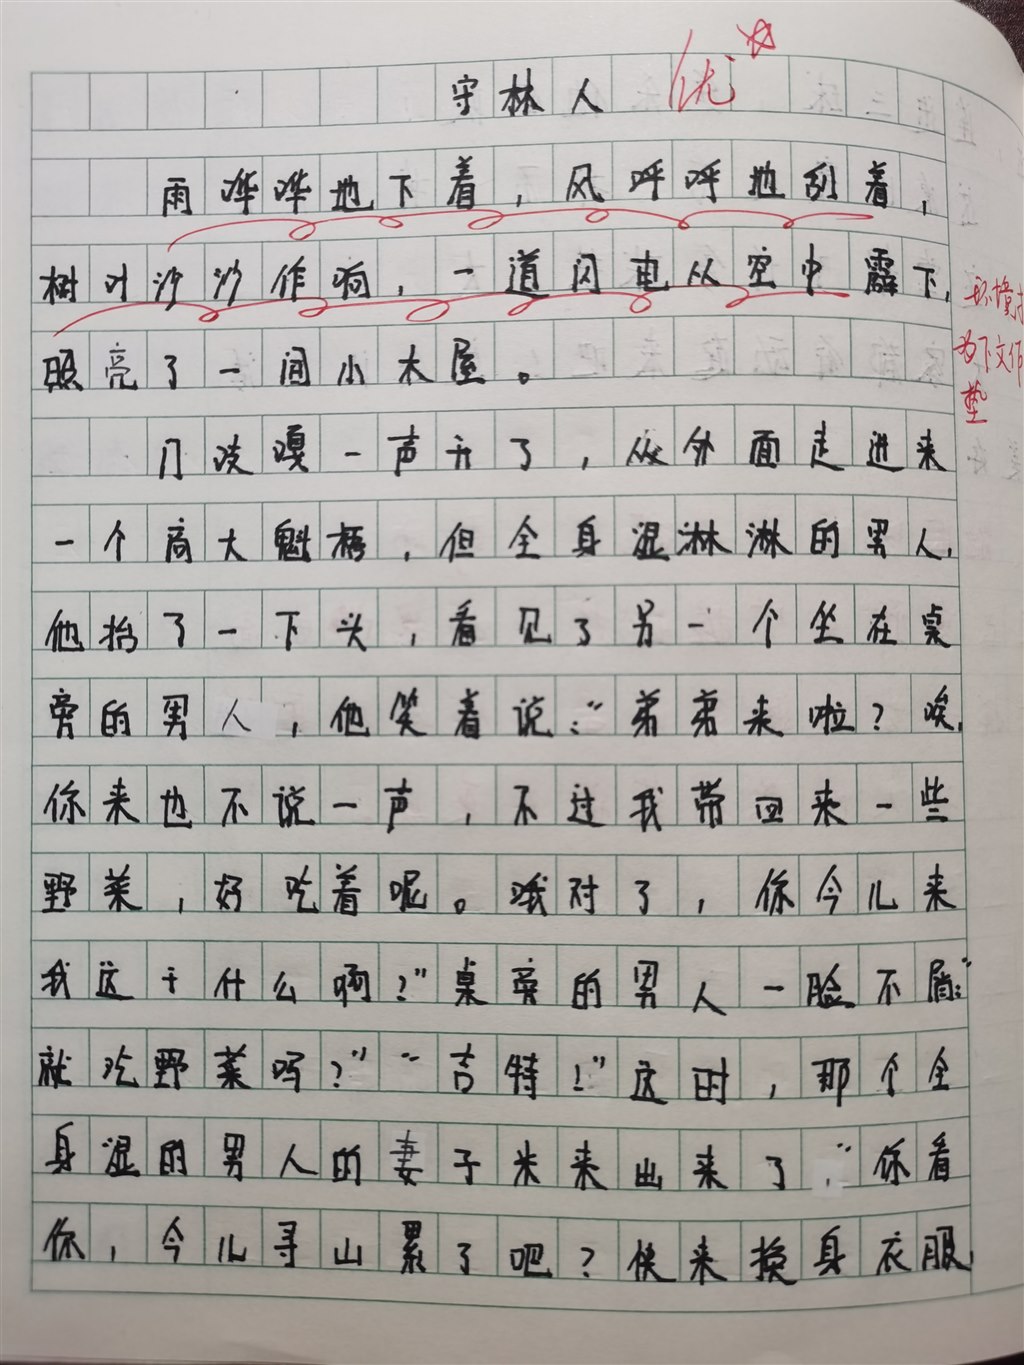 守林人 优
雨哗哗地下着，风呼呼地刮着，
树叶沙沙作响，一道闪电从空中霹下，
照亮了一间小木屋。
门吱嘎一声开了，从外面走进来
一个高大魁梧，但全身湿淋淋的男人，
他抬了一下头，看见了另一个坐在桌
旁的男人，他笑着说：“弟弟来啦？唉，
你来也不说一声，不过我带回来一些
野菜，好吃着呢。哦对了，你今儿来
我这干什么啊？”桌旁的男人一脸不屑：“
就吃野菜吗？”“吉特！”这时，那个全
身湿的男人的妻子米来出来了，“你看
你，今儿寻山累了吧？快来换身衣服，
环境
为下文作
垫